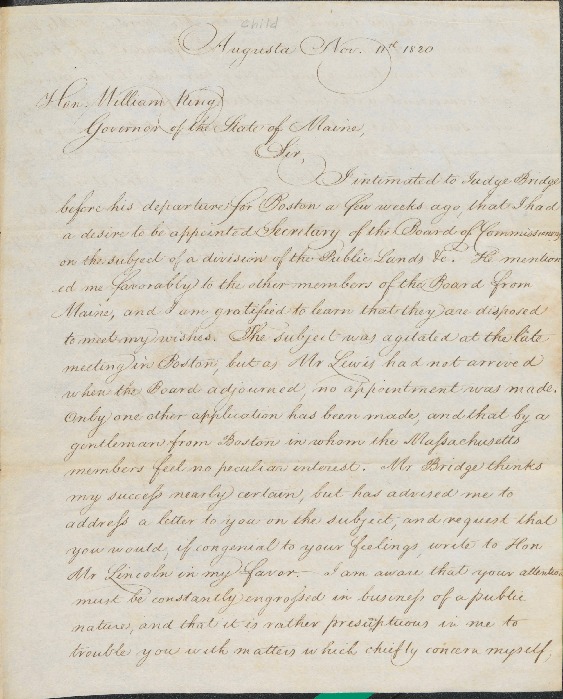 Child
Augusta Nov. 11th 1820
Hon. William King
Governor of the State of Maine,
Sir,
I intimated to Judge Bridge
before his departure for Boston a few weeks ago, that I had
a desire to be appointed Secretary of the Board of Commissioners
on the subject of a division of the Public Lands &c. He mention
ed me favorably to the other members of the Board from
Maine, and I am gratified to learn that they are disposed
to meet my wishes. The subject was agitated at the late
meeting in Boston, but as Mr Lewis had not arrived
when the Board adjourned, no appointment was made.
Only one other application has been made, and that by a
gentleman from Boston in whom the Massachusetts
members feel no peculiar interest. Mr Bridge thinks
my success nearly certain, but has advised me to
address a letter to you on the subject, and request that
you would, if congenial to your feelings, write to Hon
Mr Lincoln in my favor. - I am aware that your attention
must be constantly engrossed in business of a public
nature, and that it is rather in me to
trouble you with matters which chiefly concern myself;